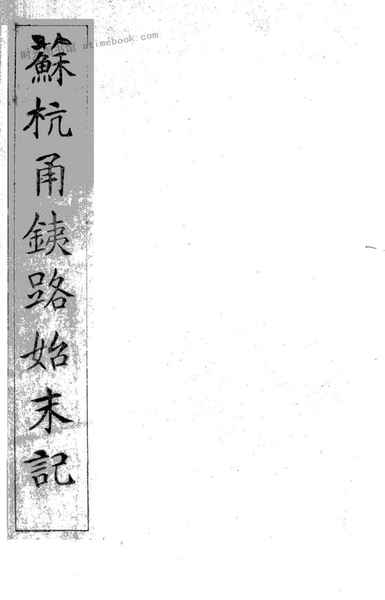 蘇杭甬鉄路始末記
atimebook.com